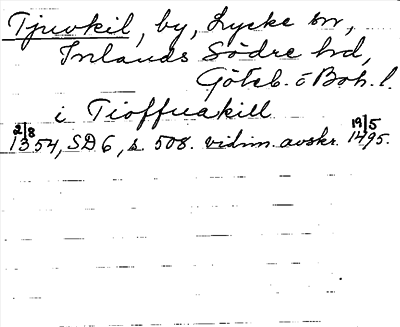 Tjuvkil, by, Lycke sn,
Inlands Södre hd,
Göteb. o Boh. l.
i Tioffuakill
2/8 1354, SD 6, s. 508. vidim. avskr. 19/5 1495.